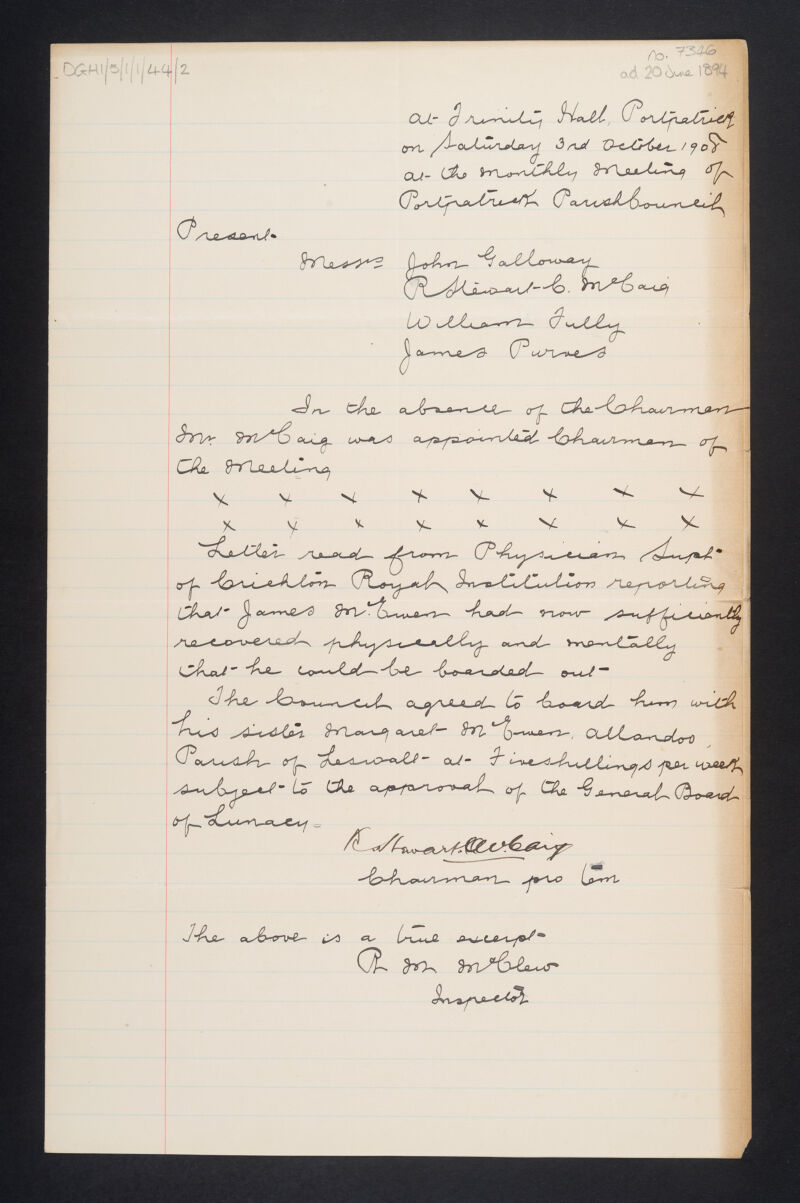 DGH1/5/1/1/44/2
no. 7346
ad 20 June 1894
At Trinity Hall, Portpatrick
on Saturday 3rd October 1908
at the Monthly Meeting of
Portpatrick Parish Council
Present
Messrs John Galloway
R Stewart C. McCaig
William Tully
James Purves
In the absence of the Chairman
Mr. McCaig was appointed Chairman of
the Meeting
x x x x x x x x
x x x x x x x x
Letter read from Physician Supt
of Crichton Royal Institution reporting
that James McEwen had now sufficiently
recovered physically and mentally
that he could be boarded out
The Council agreed to board him with
his sister Margaret McEwen, Allandoo,
Parish of Leswalt at Five shillings per week
subject to the approval of the General Board
of Lunacy
R Stewart C McCaig
Chairman pro tem
The above is a true excerpt
R M McClew
Inspector